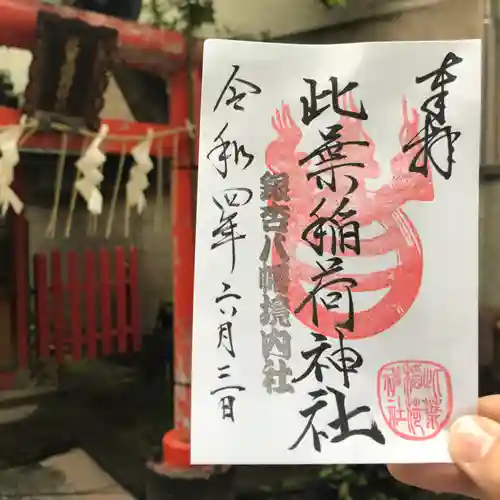 奉拝
此葉稲荷神社
銀杏八幡境内社
令和四年六月三日
此葉稲荷神社